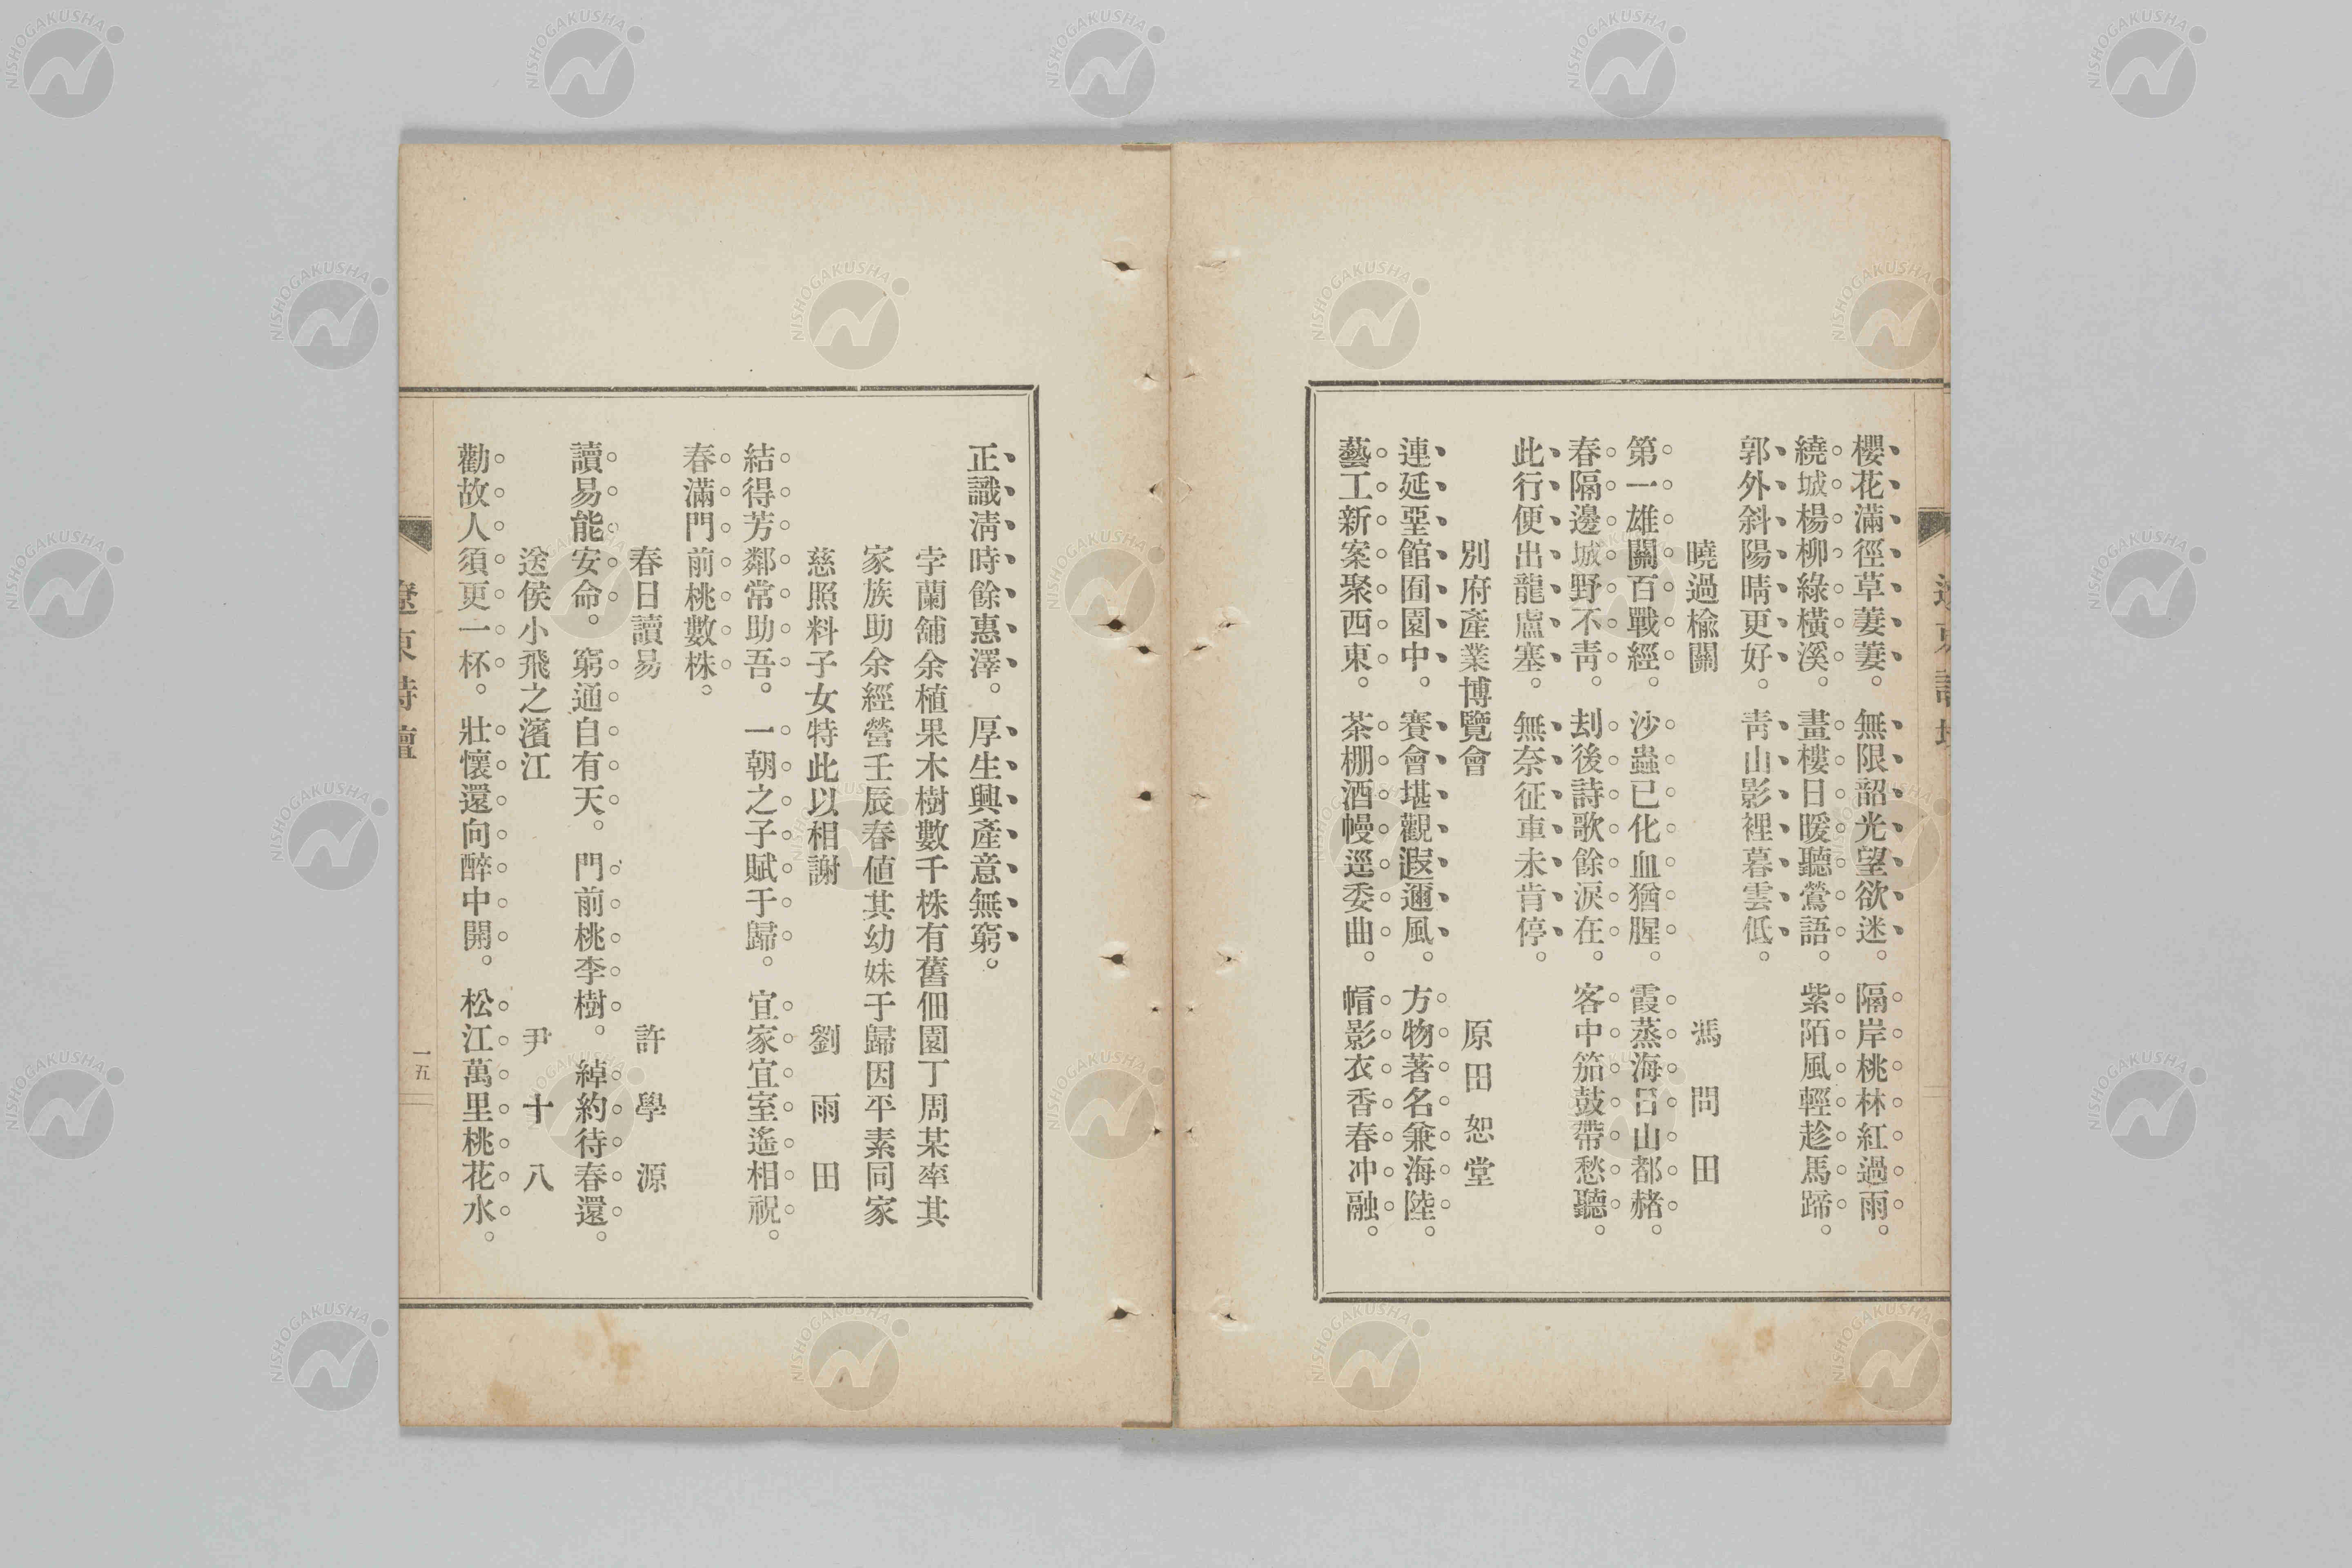 櫻花滿徑草萋萋。無限韶光望欲迷。隔岸桃林紅過雨。
繞城楊柳綠橫溪。畫樓日暖聽鶯語。紫陌風輕趁馬蹄。
郭外斜陽晴更好。靑山影裡暮雲低。
曉過楡關 馮問田
第一雄關百戰經。沙蟲已化血猶腥。霞蒸海日山都赭。
春隔邊城野不靑。刦後詩歌餘淚在。客中笳鼓帶愁聽。
此行便出龍盧塞。無奈征車未肯停。
別府產業博覽會 原田恕堂
連延堊館囿園中。賽會堪觀遐邇風。方物著名兼海陸。
藝工新案聚西東。茶棚酒幔逕委曲。帽影衣香春冲融。
正識淸時餘惠澤。厚生興產意無窮。
孛蘭舖余植果木樹數千株有舊佃園丁周某率其
家族助余經營壬辰春値其幼妹于歸因平素同家
慈照料子女特此以相謝 劉雨田
結得芳鄰常助吾。一朝之子賦于歸。宜家宜室遙相祝。
春滿門前桃數株。
春日讀易 許學源
讀易能安命。窮通自有天。門前桃李樹。綽約待春還。
送侯小飛之濱江 尹十八
勸故人須更一杯。壯懷還向醉中開。松江萬里桃花水。
遼東詩壇
一五
NISHOGAKUSHA